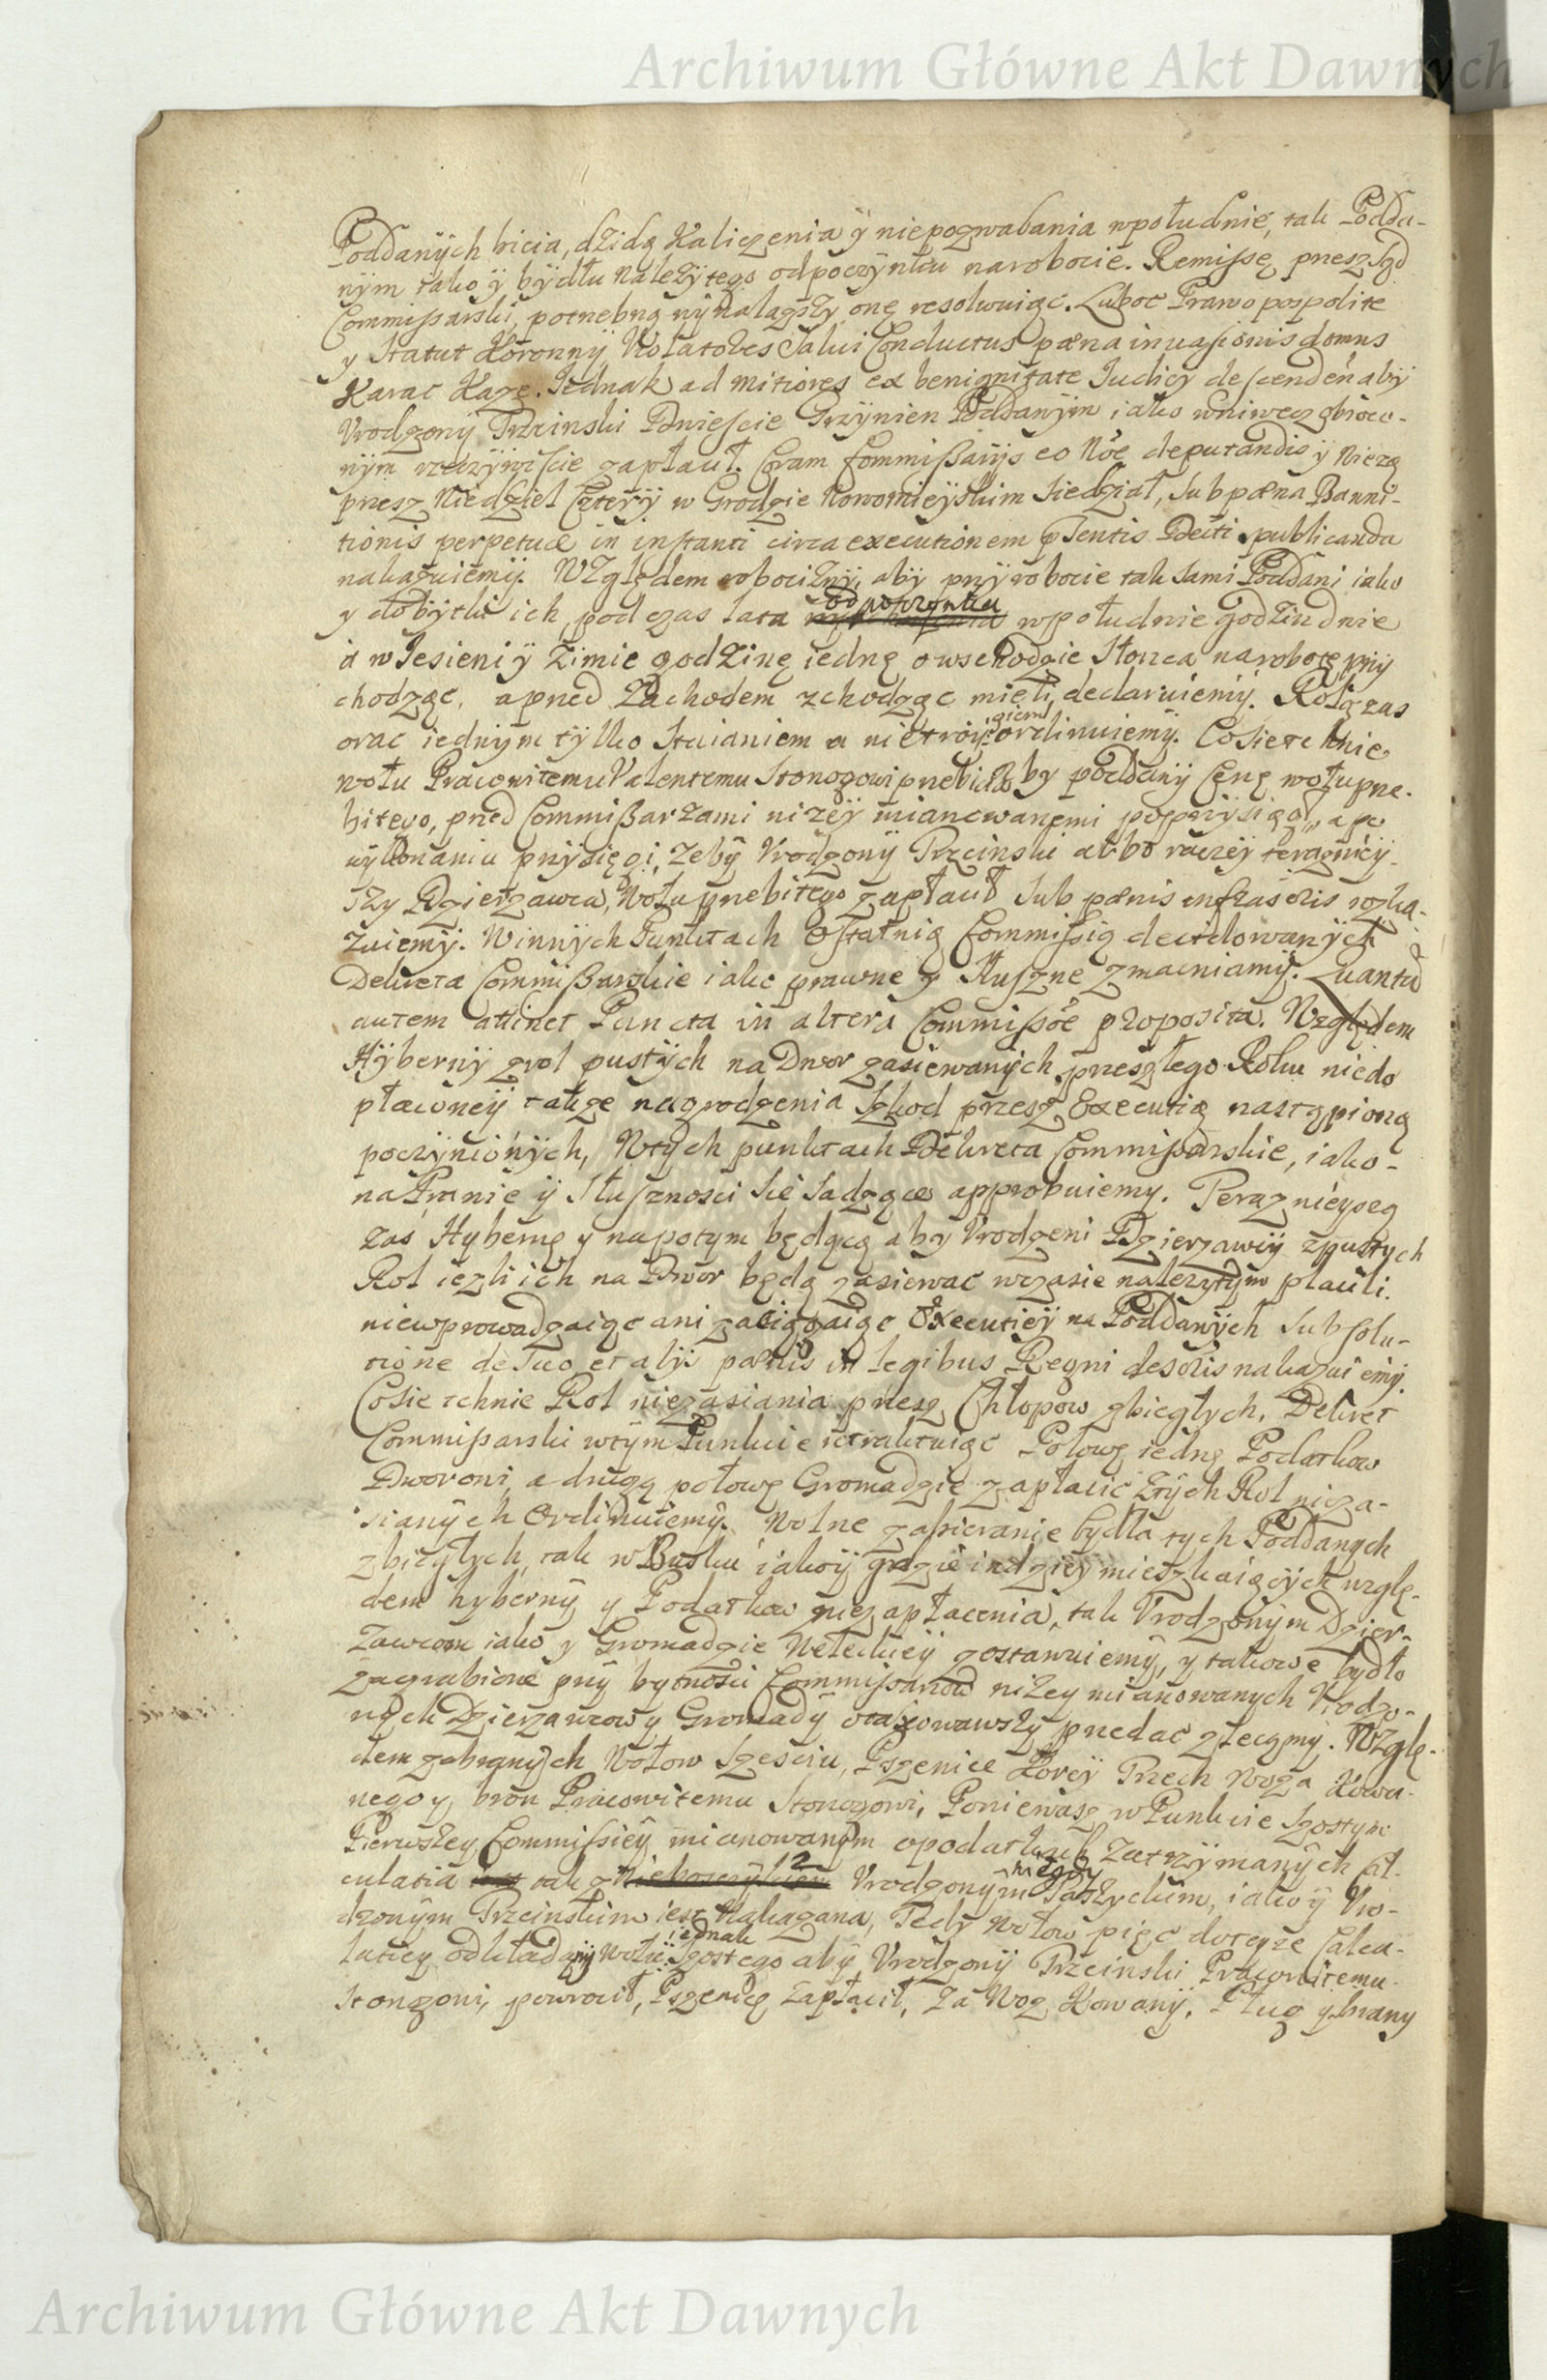 Archiwum Główne Akt Dawnych
Poddanych bicia, dzidą Kaliczenia ÿ niepozwalania wpołudnie, tak Podda-
nÿm iako ÿ bÿdłu należÿtego odpoczÿnku narobocie. Remissę przesz Sąd
Commissarski, potrzebną nÿnalazszÿ onę resolwuiąc. Luboć Prawo pospolite
y Statut Koronnÿ Violatores Salui Conductus pæna inuasionis domus
Karac Każe. Jednak ad mitiores ex benignitate Judicÿ descendendo abÿ
Vrodzonÿ Trzcinski Dwieście Grzÿwien Poddanÿm iako wniwecz obróco-
nÿm rzeczÿwiscie zapłacił. Coram Commissarÿs eo Nôe deputandis ÿ Wiezą
przesz Niedziel Czterÿ w Grodzie Nowomieÿskim siedział, sub pæna Banni-
tionis perpetuæ in instanti circa executionem pſentis Dećti publicanda
nakazuiemÿ. Względem robociznÿ, abÿ przÿ robocie tak sami Poddani iako
y dobÿtki ich, podczas lata odpoczÿnku wpołudnie godzin dwie
á w Jesieni ÿ Zimie godzinę iednę owschodzie Słonca narobotę przÿ
chodząc, aprzed Zachodem zchodząc mieli, declaruiemÿ. Rolą zas
orac iednÿm tÿlko Staianiem a nietroÿgiem ordinuiemÿ. Cosie tchnie
wołu Pracowitemu Valentemu Stonogowi przebicia by poddanÿ Cenę wołuprze-
bitego, przed Commissarzami niżeÿ mianowanemi poprzÿsiągł, apo
wÿkonaniu przÿsięgi, Zebÿ Vrodzonÿ Trzcinski albo raczeÿ teraznieÿ-
szy Dzierzawca, Wołu przebitego zapłacił sub pænis infrascris rozka-
zuiemÿ. Winnÿch Punktach Ostatnią Commissią decidowanÿch
Dekreta Commissarskie iako prawne y słuszne zmacniamÿ. Quantũ
autem attinet Puncta in altera Commissõe proposita. Względem
Hÿbernÿ zrol pustÿch na Dwor zasiewanÿch przeszłego Roku niedo
płaconeÿ takze nagrodzenia Szkod przesz Executią nastąpioną
poczÿnionÿch, Wtÿch punktach Dekreta Commissarskie, iako-
na Prawie ÿ Słusznosci się sadzące approbuiemy. Teraznieyszą
zaś Hybernę y napotym będącą aby Vrodzeni Dzierzawcÿ zpustych
Rol iezli ich na Dwor będą zasiewac wczasie należÿtÿm płacili.
niewprowadzaiąc ani zaciągaiąc Executieÿ na Poddanÿch sub solu-
tione de suo et alÿs pænis in legibus Regni descris nakazuiemÿ.
Cosie tchnie Rol niezasiania przesz Chłopow zbiegłych, Dekret
Commissarski wtÿm Punkcie retraktuiąc Połowę iednę Podatkow
Dworowi, a drugą połowę Gromadzie zapłacić ztÿch Rol nieza-
sianÿch Ordinuiemÿ. Wolne zabieranie bydła tych Poddanÿch
zbiegłych, tak w Busku iakoÿ gdzie indzieÿ mieszkaiącÿch wzglę-
dem hybernÿ y Podatkow niezapłacenia, tak Vrodzonÿm Dzier-
zawcom iako y Gromadzie zostawuiemÿ, y takowe bydło
zagrabione przÿ bytności Commissarzow niżey mianowanych Vrodzo-
nÿch Dzierzawcow y Gromadÿ przedac zlecamÿ. Wzglę-
dem zabranÿch Wołow Szesciu, Pszenice Korcÿ Trzech Woza Kowa-
nego y bron Pracowitemu Stonogowi, Poniewasz w Punkcie Szostym
Pierwszey Commissieÿ mianowanÿm opodatkach Zatrzÿmanÿch Cal-
culatia tak z Vrodzonÿm niegdy Paszyckim, iakoÿ Vro-
dzonÿm Trzcinskim iest Nakazana, Tedÿ Wołow pięc doteÿże Calcu-
latiey odkładaiąc wołu iednak szostego abÿ Vrodzonÿ Trzcinski Pracowitemu
Stonogowi, powrócił, Pszenicę Zapłacił, Za Woz Kowanÿ, Pług ÿ brany
Archiwum Główne Akt Dawnych